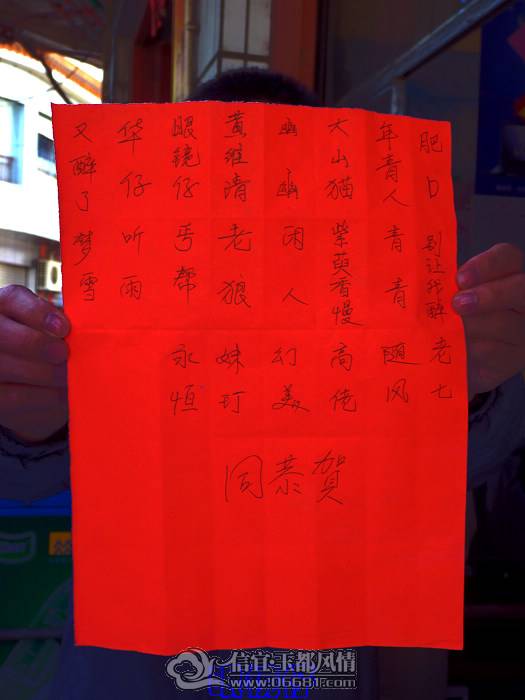 肥D 别让我醉 老七
年青人 青青 随风
大山猫 紫萸香慢 高佬
幽幽 闲人 幻美
黄维清 老狼 妹玎
眼镜仔 丐帮 永恒
华仔 听雨
又醉了 梦雪
同恭賀
信宜玉都风情
www.06681.com